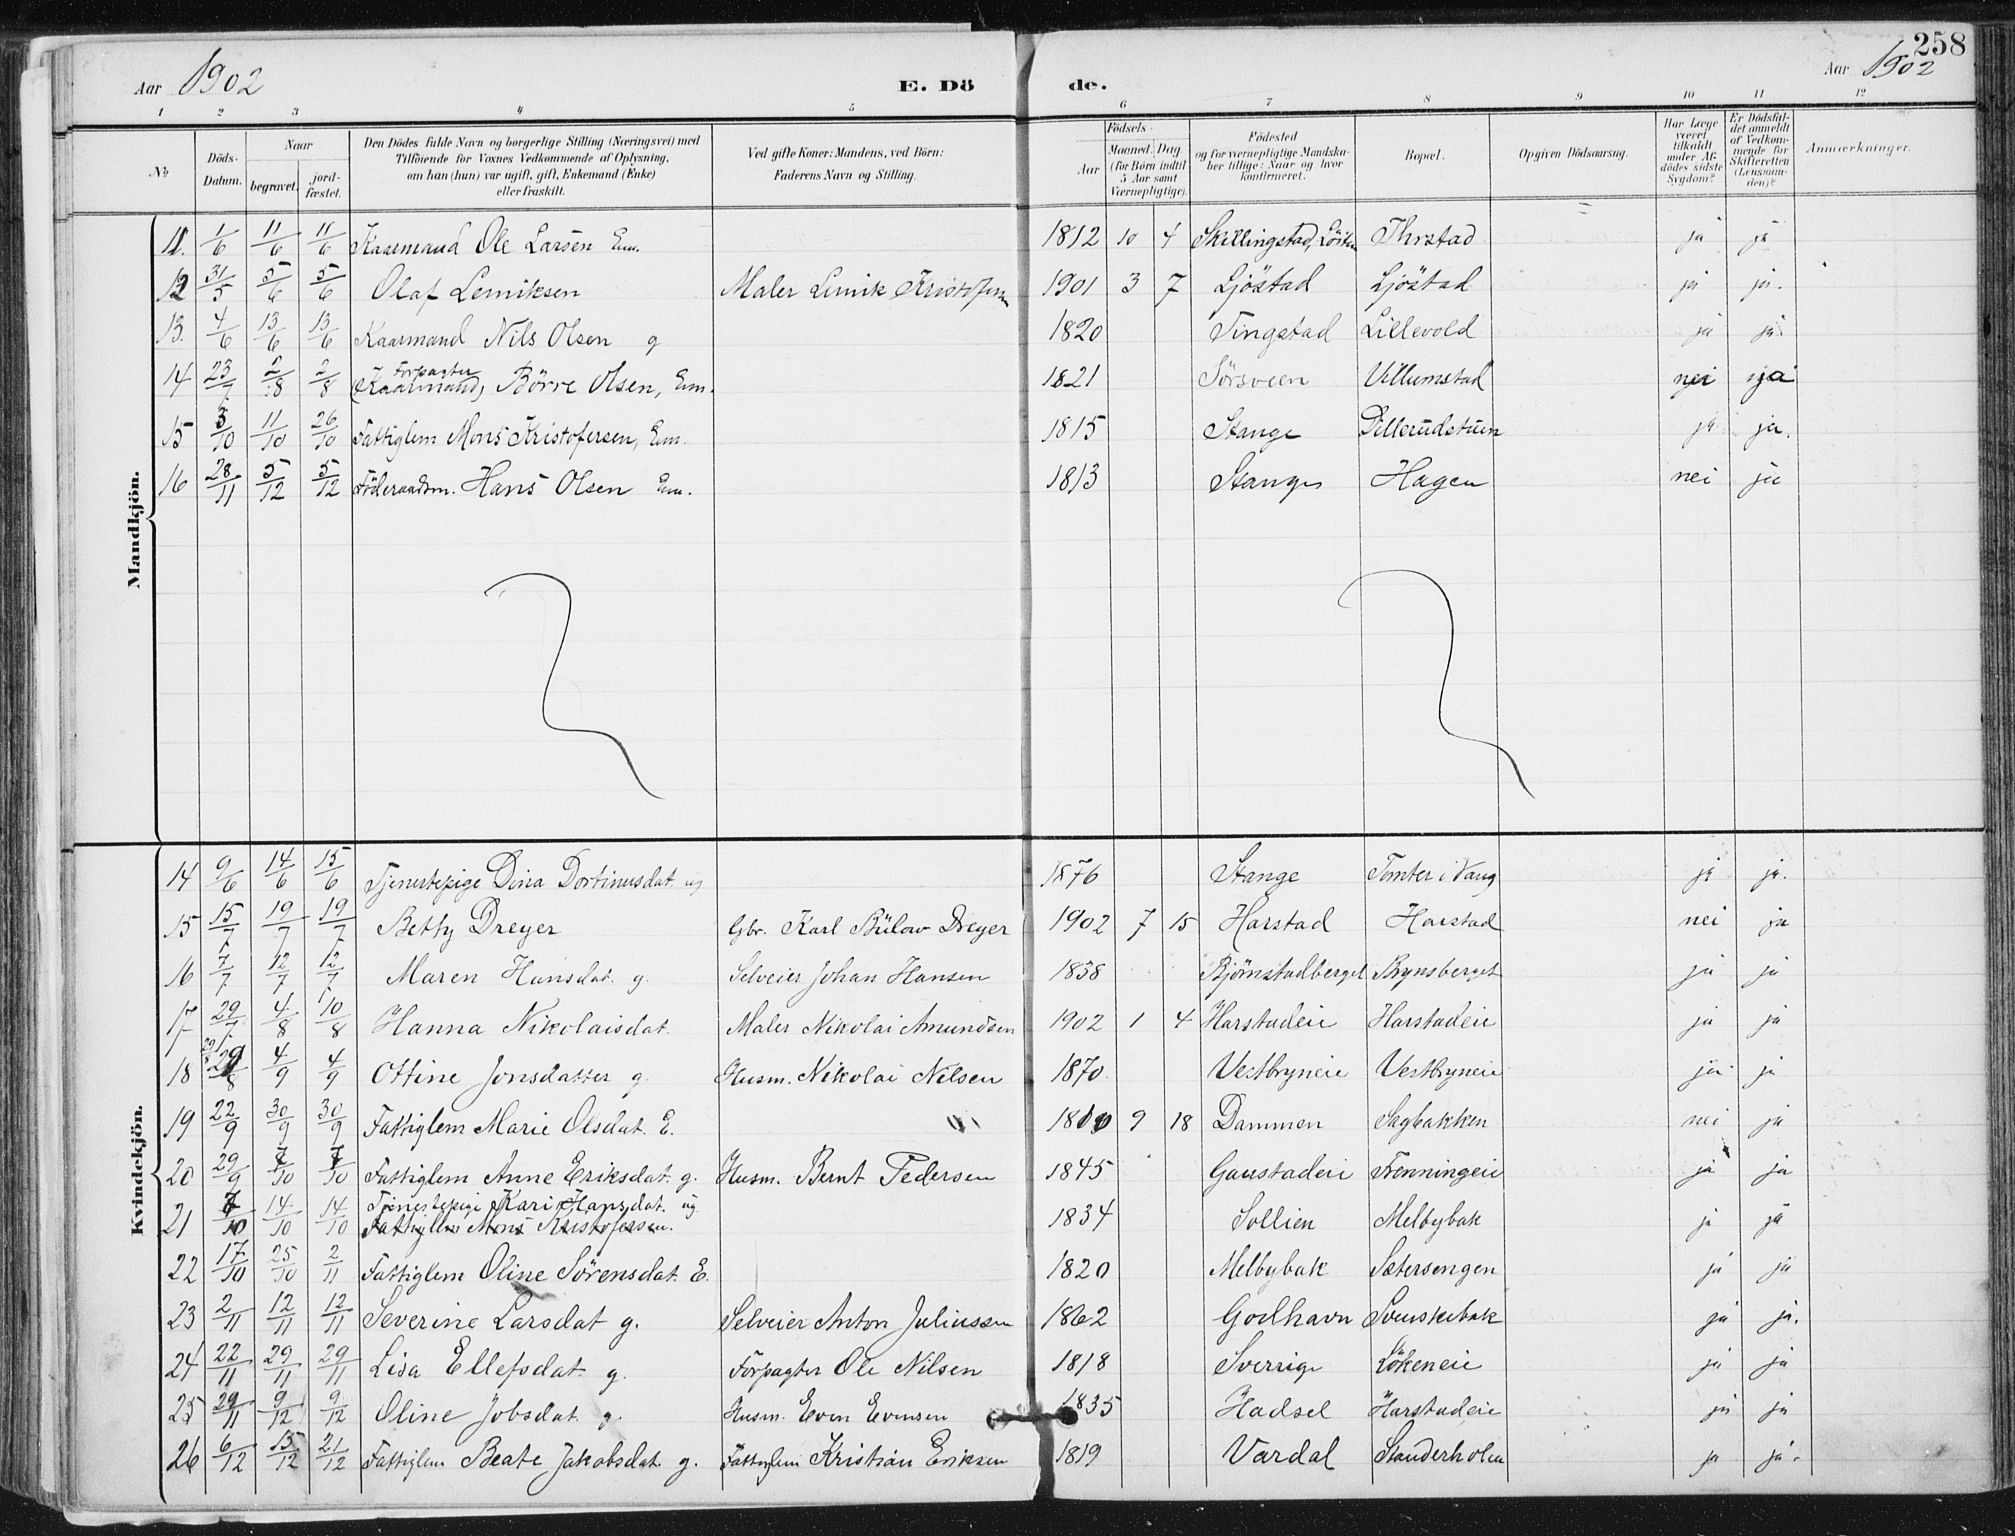 258
Aar 1902 E. Döde. Aar 1902
1 2 3 4 5 6 7 8 9 10 11 12
No Döds-Datum. Naar begravet. jord-fæstet. Den Dödes fulde Navn og borgerlige Stilling (Næringsvei) med Tilföiende for Voxnes Vedkommende af Oplysning, om han (hun) var ugift, gift, Enkemand (Enke) eller fraskilt. Ved gifte Koner: Mandens, ved Börn: Faderens Navn og Stilling. Födsels- Aar Maaned. Dag (for Börn indtil 5 Aar samt Værnepligtige). Födested og for værnepligtige Mandskaber tillige: Naar og hvor konfirmeret. Bopæl. Opgiven Dödsaarsag. Har Læge været tilkaldt under Afdödes sidste Sygdom? Er Dödsfaldet anmeldt af Vedkommende for Skifteretten (Lensmanden)? Anmærkninger.
Mandkjön.
11. 1/6 11/6 11/6 Kaarmand Ole Larsen Em. 1812 10 4 Skillingstad, Löiten ja ja
12 31/5 5/6 5/6 Olaf Lemiksen Maler Limik Kristofersen 1901 3 7 Ljöstad Ljöstad ja ja.
13. 4/6 13/6 13/6 Kaarmand Nils Olsen g 1820 Tingstad Lillevold ja ja
14 23/7 2/8 2/8 Forpagter (Kaarmand), Börre Olsen, Em. 1821 Sörsveen Villumstad nei ja
15 3/10 11/10 26/10 Fattiglem Mons Kristofersen, Em. 1815 Stange Pellerudstuen ja ja.
16 28/11 5/12 5/12 Föderaadsm. Hans Olsen Em. 1813 Stange Hagen nei ja
Kvindekjön.
14 9/6 14/6 15/6 Tjenestepige Dina Dortinusdat. ug 1876 Stange Tomter i Vang ja ja.
15 15/7 19/7 19/7 Betty Dreyer Gbr. Karl Bülow Dreyer 1902 7 15 Harstad Harstad nei ja
16 7/7 12/7 12/7 Maren Hansdat. g. Selveier Johan Hansen 1838 Björnstadberget Brynsberget ja ja
17 29/7 4/8 10/8 Hanna Nikolaisdat. Maler Nikolai Amundsen 1902 1 4 Harstadeie Harstadeie ja ja
18 29/8 4/9 4/9 Ottine Jonsdatter g. Husm. Nikolai Nilsen 1870 Vestbryneie Vestbryneie ja ja
19 22/9 30/9 30/9 Fattiglem Marie Olsdat. E. 9 18 Dammen Sagbakken nei ja
20 29/9 7/10 7/10 Fattiglem Anne Eriksdat. g. Husm. Bernt Pedersen 1845 Gaustadeie Frenningeie ja ja
21 7/10 14/10 14/10 Tjenestepige Kari Hansdat. ug Fattiglem Mons Kristofersen. 1834 Sollien Melbybak ja ja
22 17/10 25/10 2/11 Fattiglem Oline Sörensdat. E. 1820 Melbybak Sætersengen ja ja
23 2/11 12/11 12/11 Severine Larsdat g. Selveier Anton Juliussen 1862 Godhavn Svenskebak ja ja.
24 22/11 29/11 29/11 Lisa Ellefsdat. g. Forpagter Ole Nilsen 1818 Sverrige Lökeneie ja ja
25 29/11 9/12 9/12 Oline Jobsdat. g. Husm. Even Evensen 1835 Hadsel Harstadeie ja ja
26 6/12 15/12 21/12 Fattiglem Beate Jakobsdat. g. Fattiglem Kristian Eriksen 1819 Vardal Standerholen ja ja.